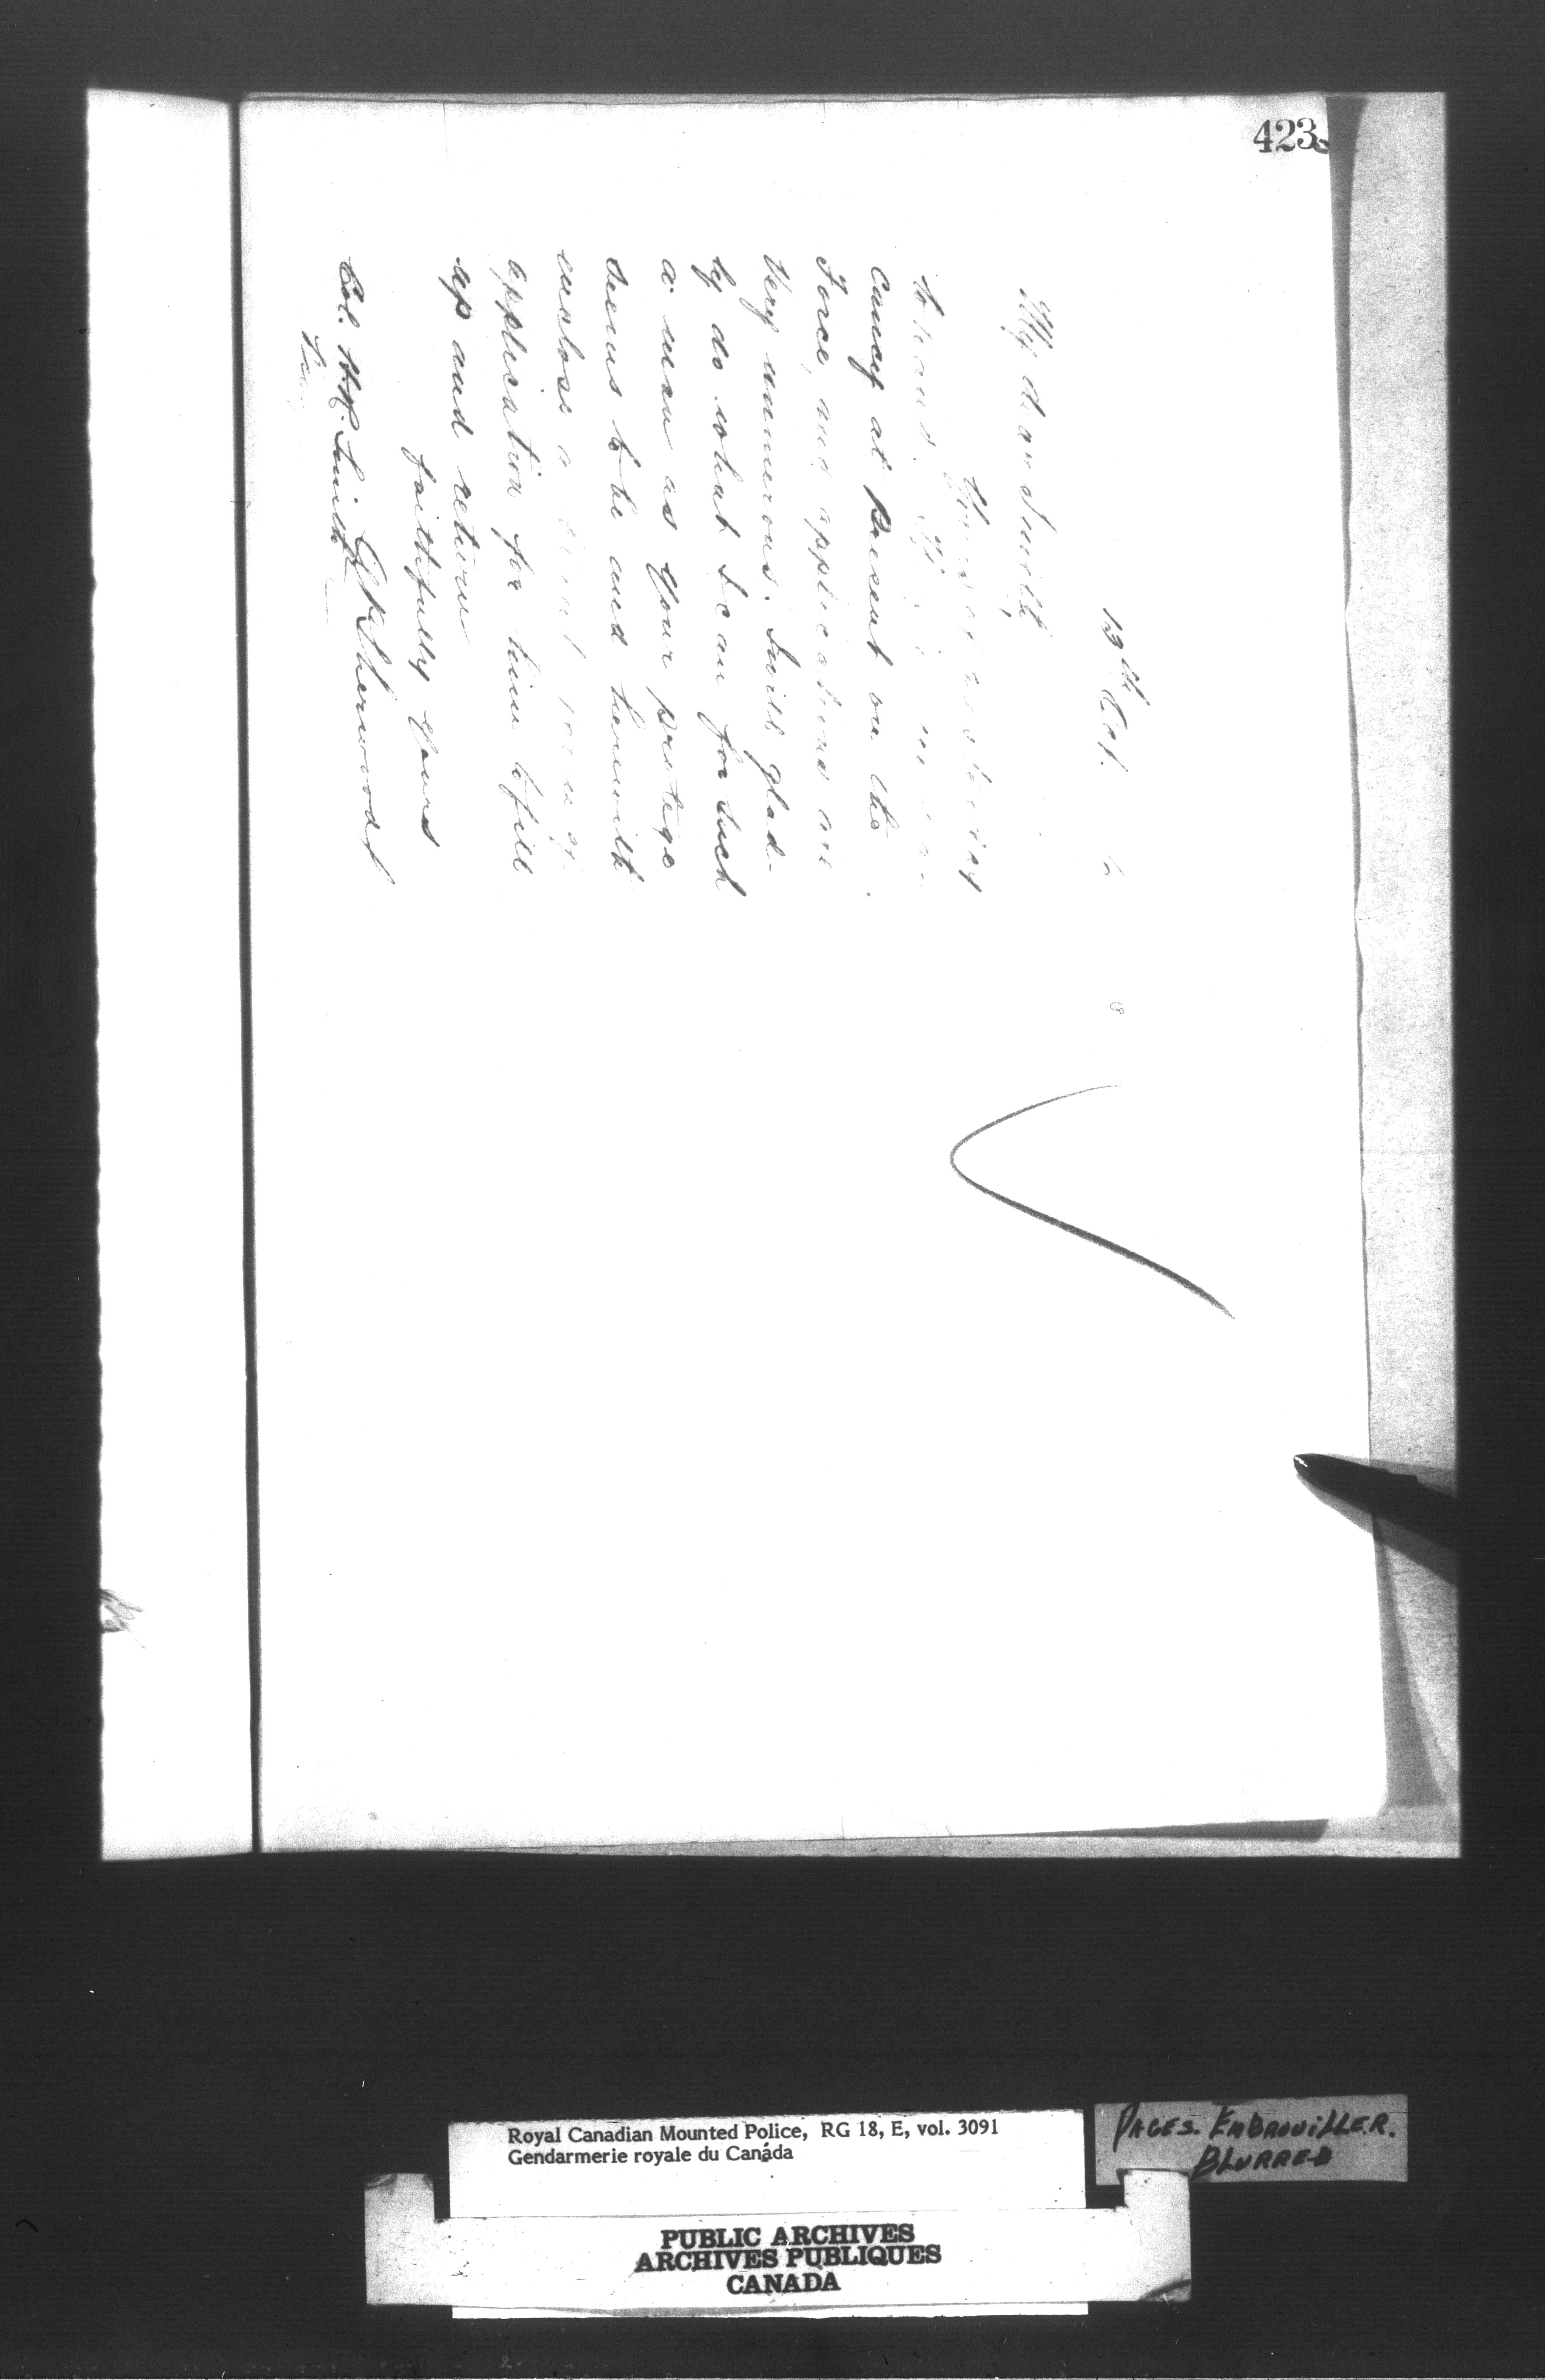 423
13th Oct.
My dear Smith,
Yours of yesterday
to hand.
cancy at present on the
Force, and applications are
very numerous. I will glad-
ly do what I can for such
a man as your protege
seems to be and herewith
enclose a
application for him to fill
up and return
faithfully yours
APSherwood
Col. H.R. Smith
Royal Canadian Mounted Police, RG 18, E, vol. 3091
Gendarmerie royale du Canada
PAGES. EMBROUILLER.
BLURRED
PUBLIC ARCHIVES
ARCHIVES PUBLIQUES
CANADA